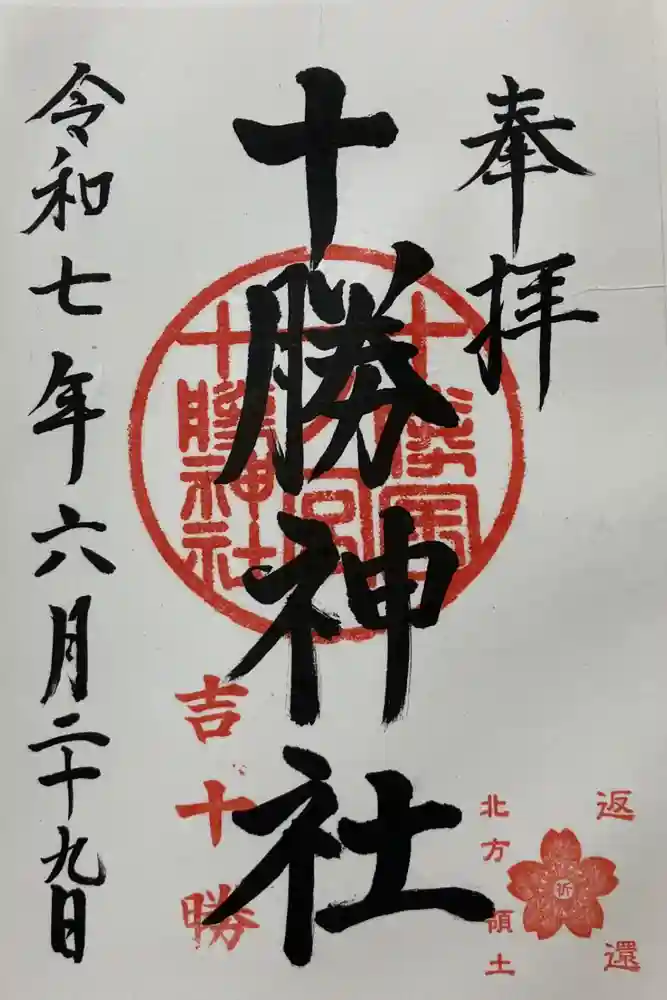 奉拝
十勝神社
十勝國
一之宮
十勝神社
吉十勝
令和七年六月二十九日
祈
返還
北方領土